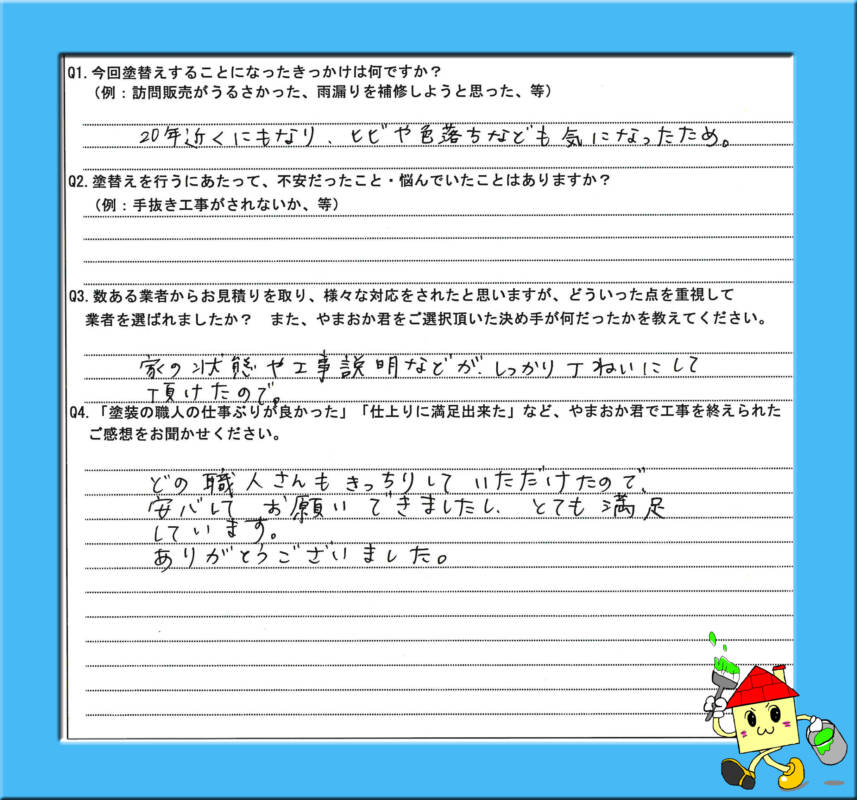 Q1.今回塗替えすることになったきっかけは何ですか？
（例：訪問販売がうるさかった、雨漏りを補修しようと思った、等）
20年近くにもなり、ヒビや色落ちなども気になったため。
Q2.塗替えを行うにあたって、不安だったこと・悩んでいたことはありますか？
（例：手抜き工事がされないか、等）
Q3.数ある業者からお見積りを取り、様々な対応をされたと思いますが、どういった点を重視して
業者を選ばれましたか？　また、やまおか君をご選択頂いた決め手が何だったかを教えてください。
家の状態や工事説明などが、しっかり丁ねいにして
頂けたので。
Q4.「塗装の職人の仕事ぶりが良かった」「仕上りに満足出来た」など、やまおか君で工事を終えられた
ご感想をお聞かせください。
どの職人さんもきっちりして いただけたので、
安心して お願い できましたし、とても 満足
しています。
ありがとうございました。